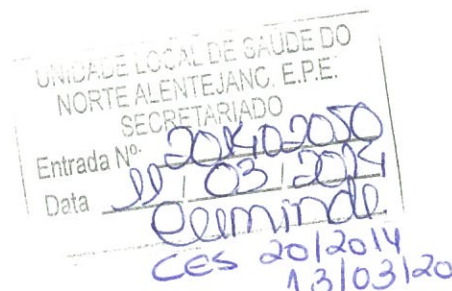 UNIDADE LOCAL DE SAÚDE DO
NORTE ALENTEJANO, E.P.E.
SECRETARIADO
Entrada Nº 201402050
Data 11/03/2014
CES 20/2014
13/03/20